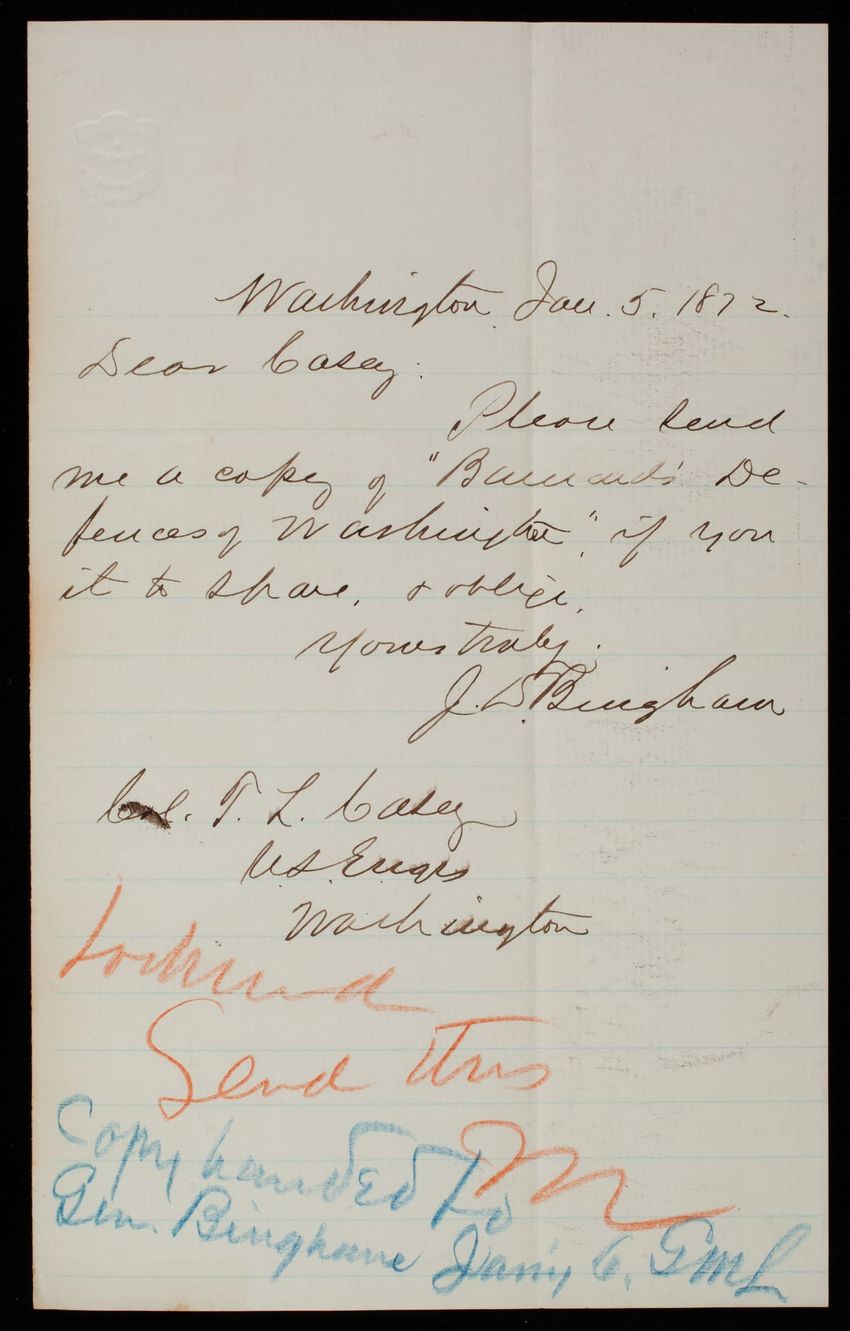 Washington, Jan. 5. 1872.
Dear Casey:
Please send
me a copy of "Barnard's De-
fences of Washington", if you
it to spare, & oblige,
Yours truly,
J. D. Bingham
Col. T. L. Casey
U.S. Engrs
Washington
Lockwood
Send this
Copy handed to
Gen. Bingham Jan'y 6. GML